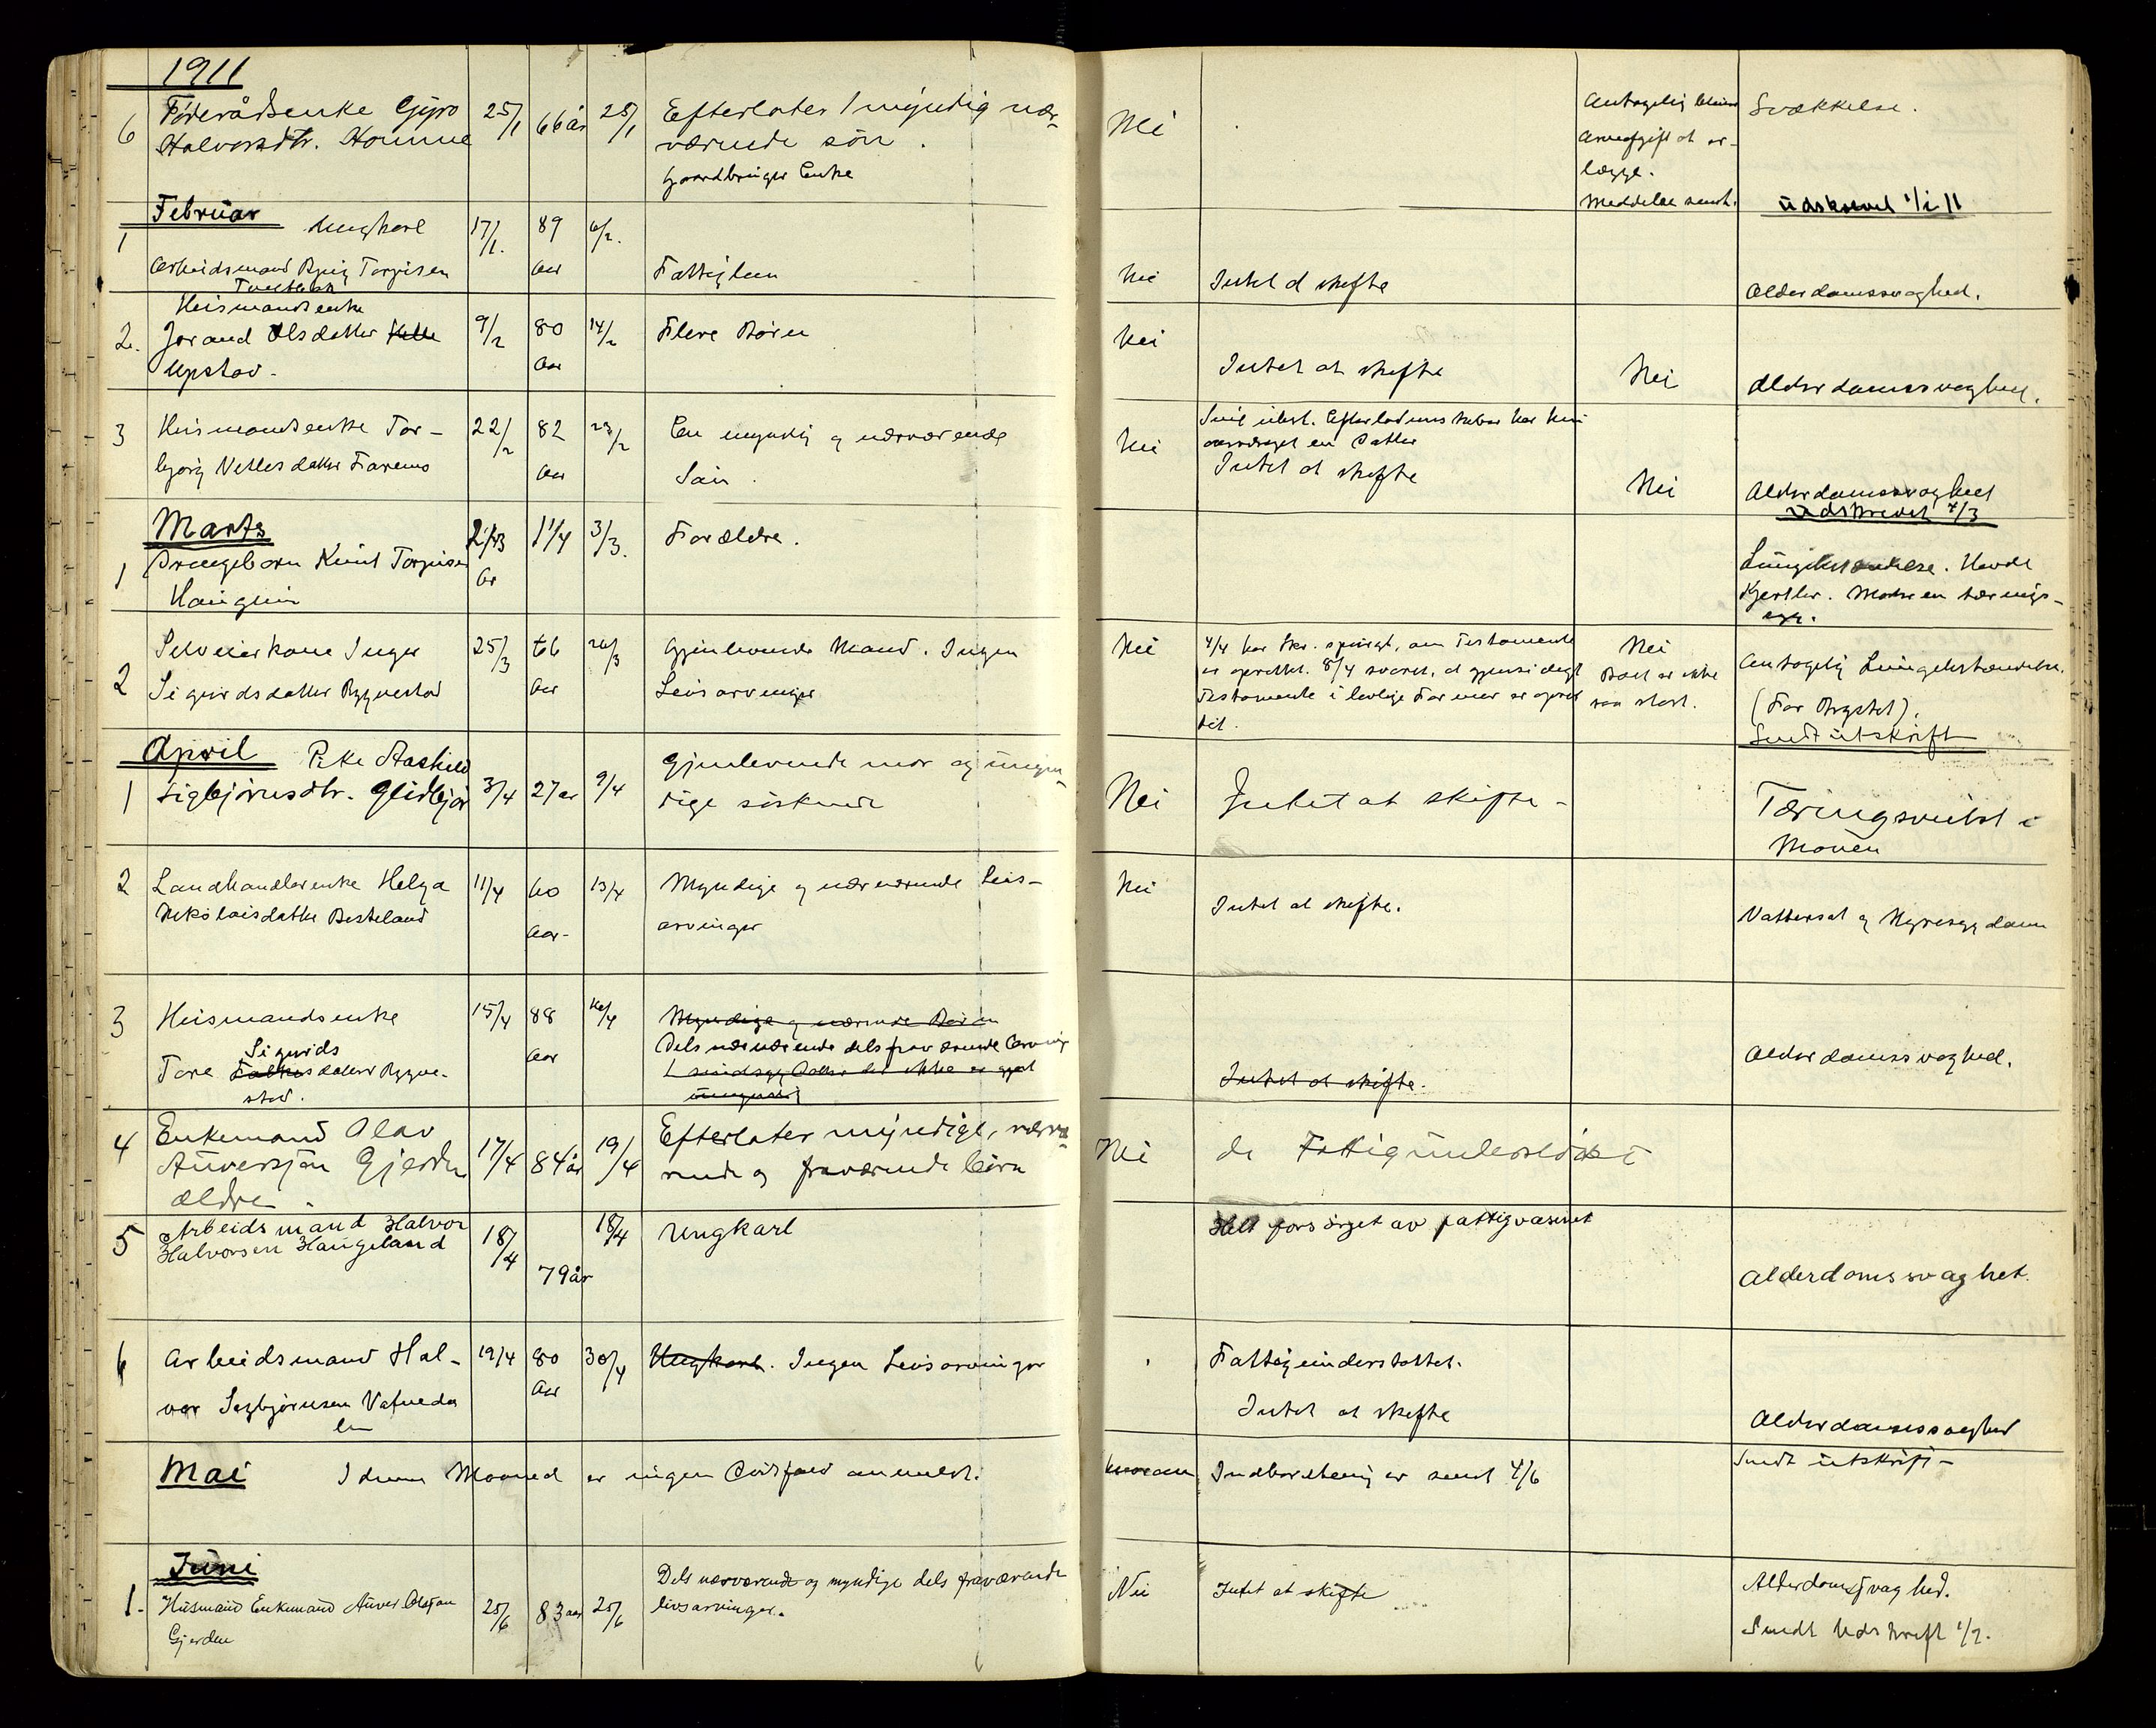 1911
6 Føderådsenke Gyro 25/1 66 år 28/1 Efterlater 1 myndig nær- Nei Antagelig Svækkelse.
Halvorsdtr. Homme værende søn. Arveafgift at er-
Gaardbruger Enke lægge.
Meddelse sendt. Udskrevet 1/2 11
Februar Ungkarl 17/1. 89 6/2.
1 Arbeidsmand Torgisen Aar Fattiglem Nei Intet at skifte Alderdomssvaghed.
Husmandsenke
2. Jorand Olsdatter 9/2 80 14/2 Flere Børn Nei
Upstad. Aar Intet at skifte Nei Alderdomssvaghed.
3 Husmandsenke Tor- 22/2 82 23/2 En myndig og nærværende Nei en Datter
bjørg Vellesdatter Faremo Aar Søn. Intet at skifte Nei Alderdomssvaghed
Udskrevet 4/3
Marts
1 Drengebarn Knut Torgusen 2/3 1 1/4 3/3. Forældre. Lungebetændelse. Havde
Haugen Ar Kjertler. Moren tærings-
syg.
2 Selveierkone Inger 25/3 66 26/3 Gjenlevende Mand. Ingen Nei 4/4 har Skr. spurgt, om Testamente Nei Antagelig Lungebetændelse.
Sigurdsdatter Rygnestad Aar Livsarvinger er oprettet. 8/4 svaret, at gjensidigt Boet er ikke (Før Brystet).
Testamente i lovlige Former er opret saa stort. Sendt utskrift
tet.
April Pike Aashild
1 Sigbjørnsdtr. Glidbjør 3/4 27 år 9/4 Gjenlevende mor og myn- Nei Intet at skifte - Tæringsvulst i
dige søskende Maven
2 Landhandlerenke Helga 11/4 60 13/4 Myndige og nærværende Livs- Nei Intet at skifte. Vattersot og Nyresygdom
Nikolaisdatter Besteland Aar- arvinger
3 Husmandsenke 15/4 88 16/4 Myndige og nærværende Børn
Sigurds Aar Dels nærværende dels fraværende Arvinger Alderdomssvaghed.
Tore Folkesdatter Rygne- 1 sindssyg Datter der ikke er gjort Intet at skifte.
stad. umyndig
4 Enkemand Olav 17/4 84 år 19/4 Efterlater myndige, nærvæ- Nei do Fattigunderstøttet
Auversjøn Gjerden rende og fraværende børn
ældre.
5 Arbeidsmand Halvor 18/4 79 år 18/4 Ungkarl Helt forsørget av fattigvæsenet
Halvorsen Haugeland Alderdomssvaghet.
6 Arbeidsmand Hal- 19/4 80 30/4 Ungkarl. Ingen Livsarvinger Fattigunderstøttet.
vor Sigbjørnsen Vatneda Aar Intet at skifte Alderdomssvaghed
len
Mai I denne Maaned er ingen Dødsfald anmeldt. Indberetning er sendt 4/6 Sendt utskrift -
Juni
1. Husmand Enkemand Auver Olafsøn 25/6 83 aar 25/6 Dels nærværende og myndige dels fraværende Nei Intet at skifte Alderdomssvaghed.
Gjerden livsarvinger. Sendt Udskrift 1/7.